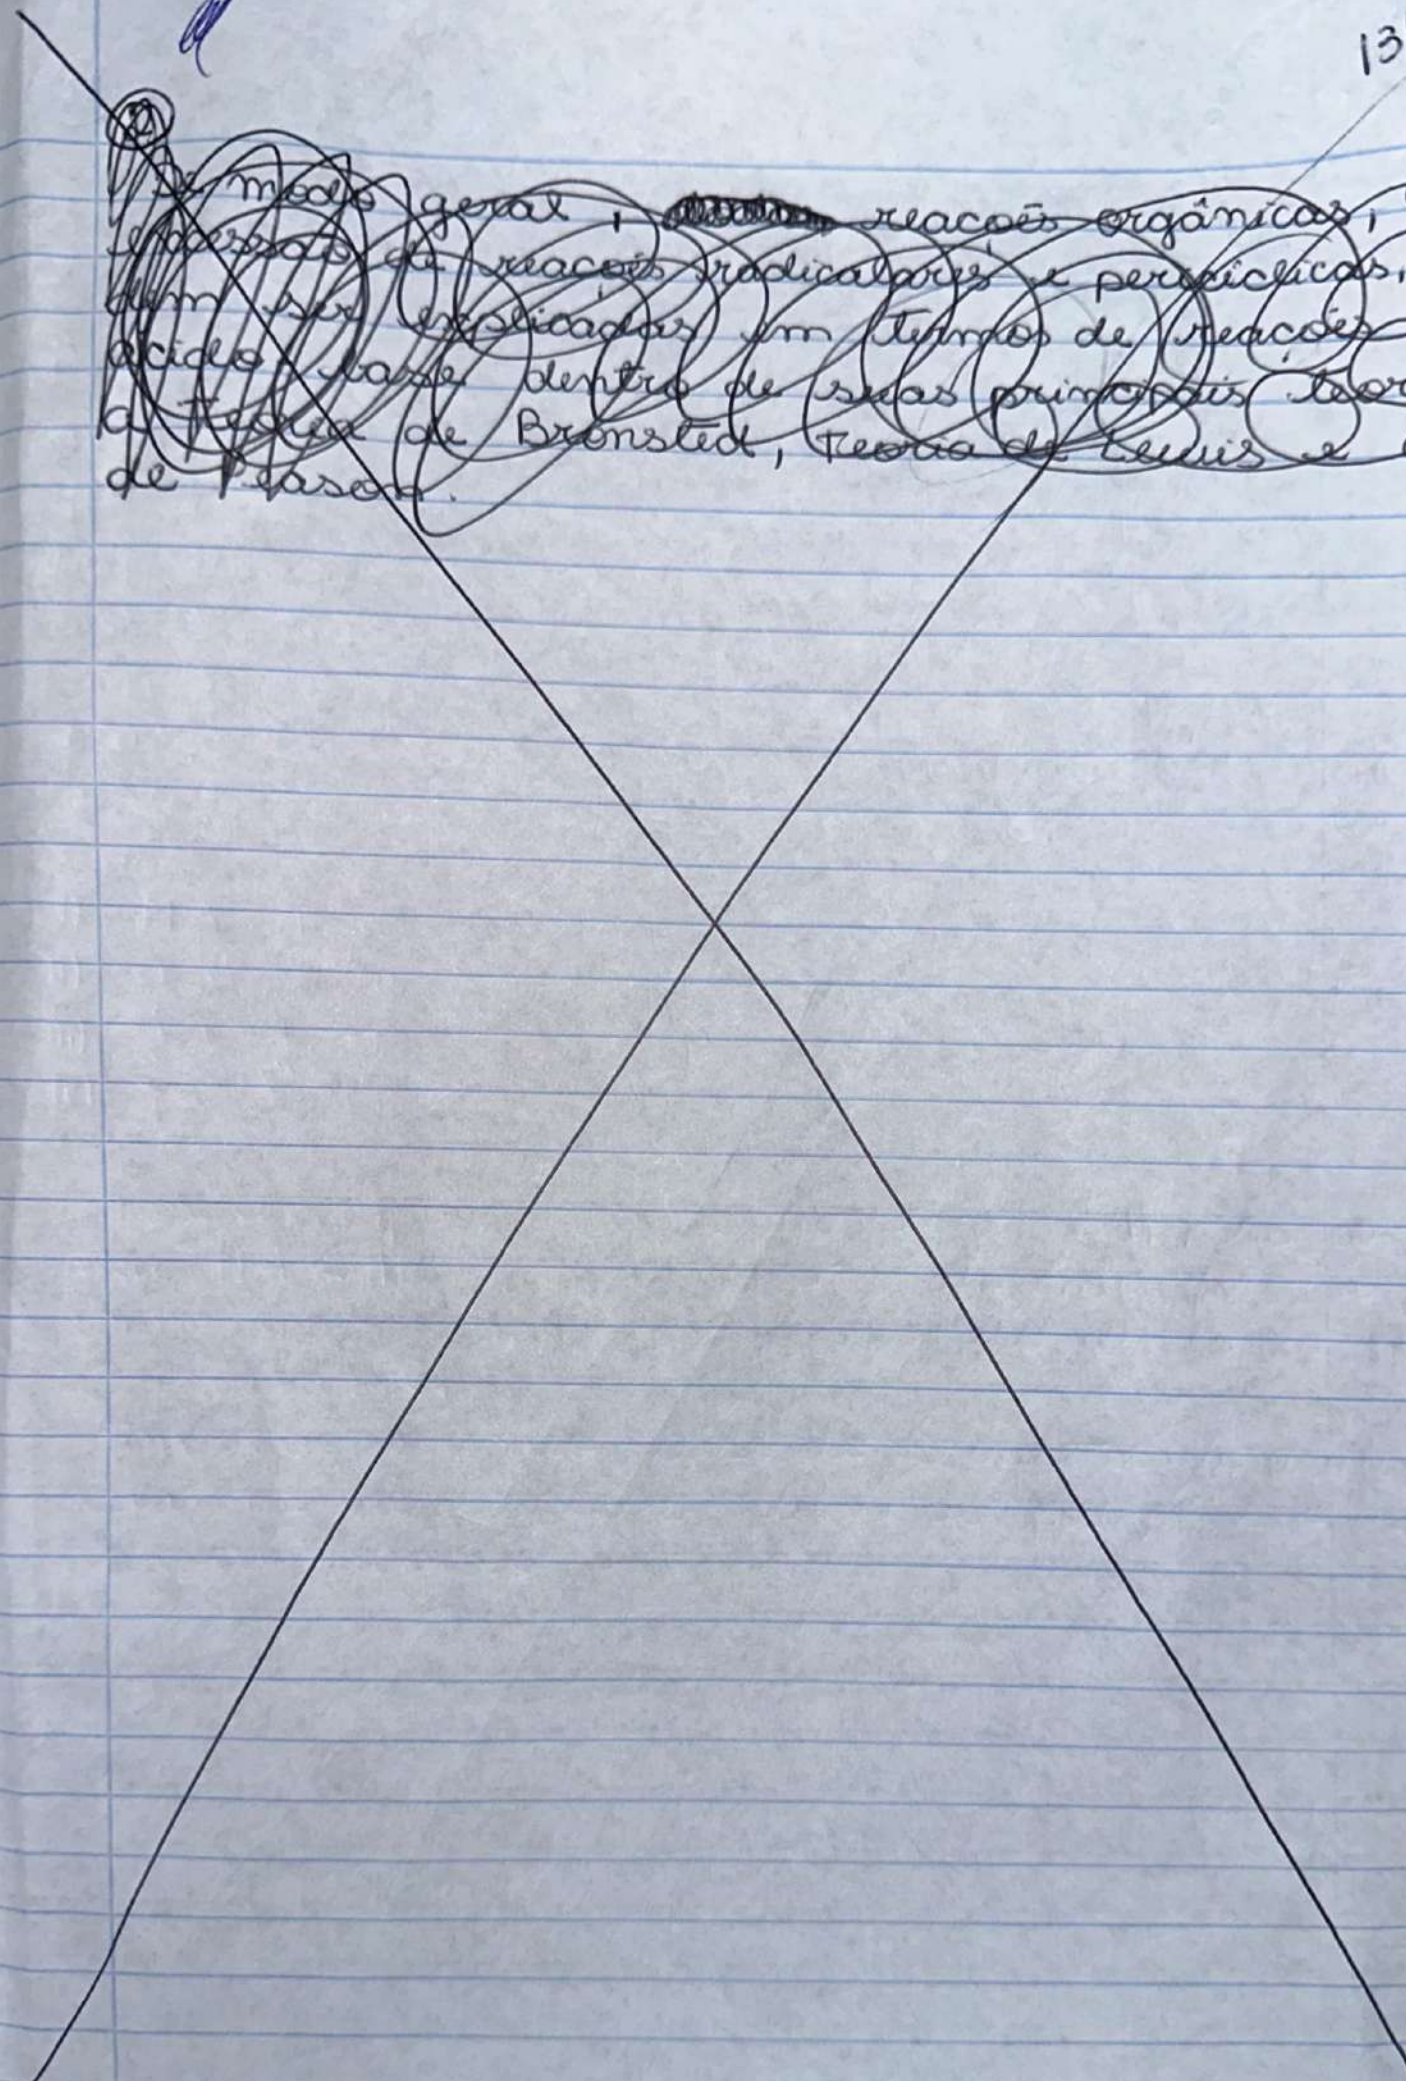 13
②
De modo geral, reações orgânicas,
excessão de reações radicalares e periciclicas,
dem ser explicadas em termos de reações
ácido base dentro de suas principais teor
a Teoria de Bronsted, Teoria de Lewis e
de Peason.